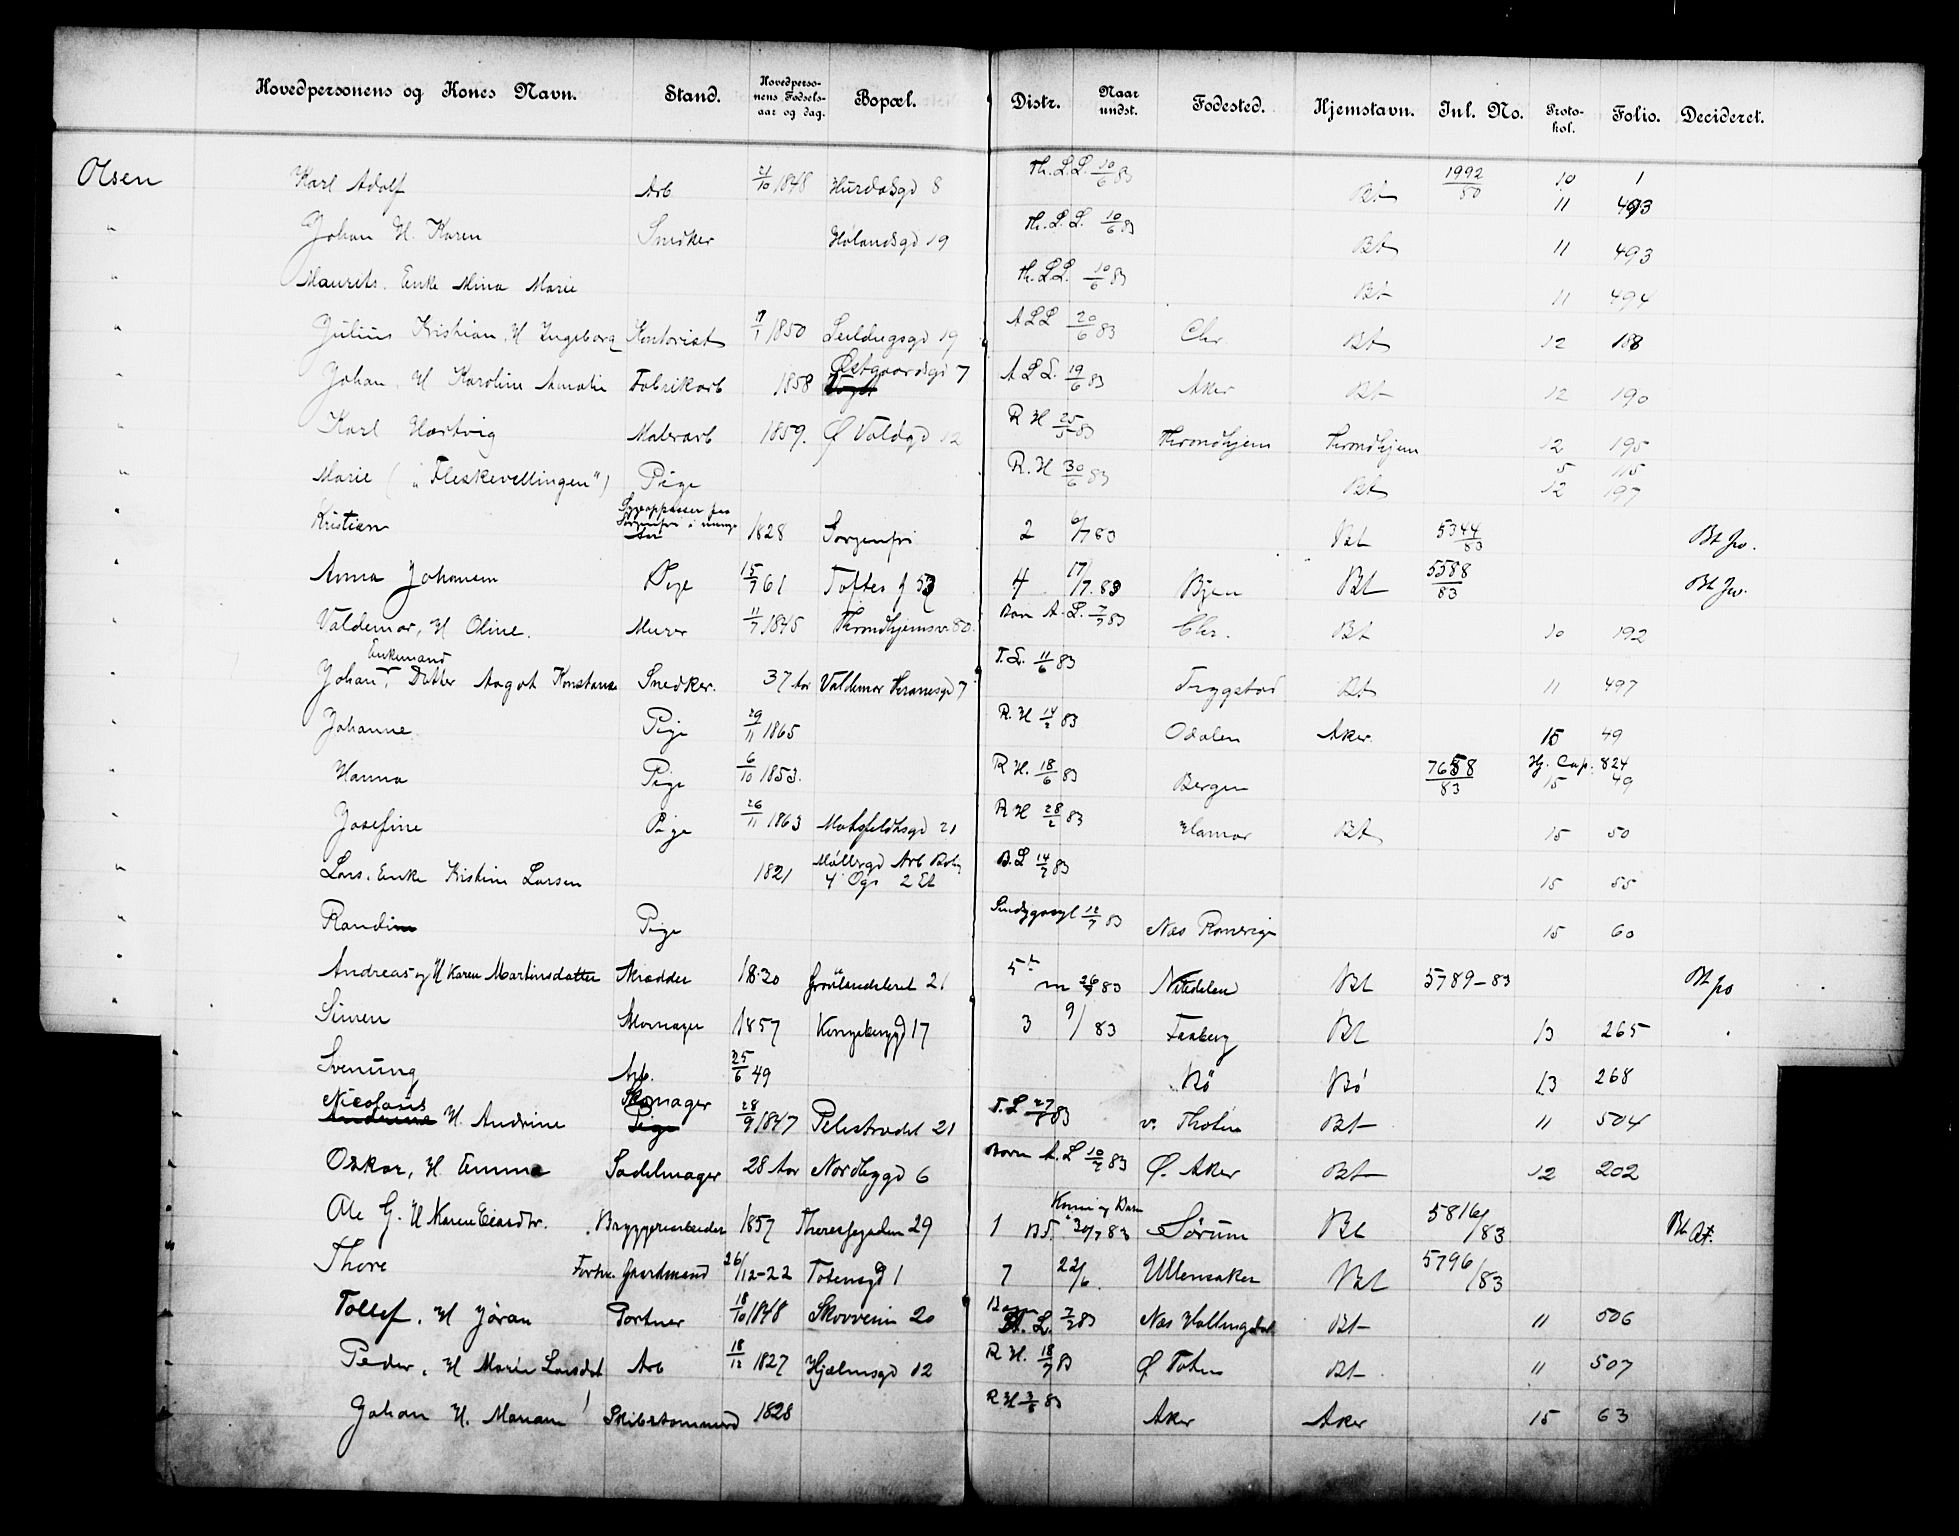 Hovedpersonens og Kones Navn. Stand. Hovedpersonens Fødselsaar og dag. Bopæl. Distr. Naar undst. Fødested. Hjemstavn. Inl. No. Protokol. Folio. Decideret.
Olsen Karl Adolf Arb 21/10 1848 Hurdalsgd 8 Th. L.L. 10/6 83 Bt 1992/80 10 1
11 493
" Johan H. Karen Snedker Hølandsgd 19 Th. L.L. 10/6 83 Bt 11 493
" Maurits. Enke Mina Marie Th. L.L. 10/6 83 Bt 11 494
" Julius Kristian, H Ingeborg Kontorist 1850 19 A L L 20/6 83 Chr. Bt 12 188
" Johan, H Karoline Amalie Fabrikarb 1858 Østgaardsgd 7 A L L. 19/6 83 Aker Bt 12 190
" Karl Hartvig Malerarb 1859. Ø Voldgd 12 R H 25/5 83 Throndhjem Throndhjem 12 195
" Marie ("Fleskevellingen") Pige R. H 30/6 83 Bt 5 115
12 197
" Kristian Sygepasser paa Sorgenfri i mange Aar 1828 Sorgenfri 2 6/7 83 Bt 5344/83 Bt Jvo.
" Anna Johansen Pige 15/7 61 Toftes g 53 4 17/7. 83 Bt 5588/83 Bt Jvo.
" Valdemar, H Oline. Murer 11/7 1845 Throndhjemsv. 80. Barn A. L. 7/7 83 Chr. Bt 10 192
Enkemand
" Johan, Datter Aagot Konstanse Snedker. 37 Aar Valdemar Thranesgd 7 T. L. 11/6 83 Trygstad Bt 11 497
" Johanne. Pige 29/11 1865 R. H 14/2 83 Odalen Aker 15 49
" Hanna Pige 6/10 1853. R H. 18/6 83 Bergen 7658/83 Hj. Cap. 824
15 49
" Josefine Pige 26/11 1863 Motzfeldtsgd 21 R H 28/2 83 Hamar Bt 15 50
" Lars. Enke Kristine Larsen 1821 Møllergd Arb Bolig 4 Opg 2 Et B. L 14/7 83 15 55
" Randi Pige 12/7 83 Næs Romerige 15 60
" Andreas og H Karen Martinsdatter Skrædder 1830 Grønlandsleret 21 5 26/7 83 Nitedalen Bt 5789-83 Bt Jvo
" Simen Skomager 1857 Kongsberggd 17 3 9/ 83 Faaberg Bt 13 265
" Svenung Arb. 25/6 49 Bö Bö 13 268
" Nicolaus H. Andrine Skomager 28/9 1847 Pilestrædet 21 T. L 27/6 83 v. Thoten Bt 11 504
" Oskar, H Emma Sadelmager 28 Aar Nordbygd 6 Barn A. L 10/7 83 Ø. Aker Bt 12 202
" Ole G. H Karen Bryggeriarbeider 1857 Theresesgaden 29 1 Konen og Barn 30/7 83 Sørum Bt 5816/83 Bt At.
" Thore Forhv. Gaardmand 26/12-22 Totensgd 1 7 22/6. Ullensaker Bt 5796/83
" Tollef, H Jøran Portner 18/10 1848 Skovveien 20 Barn A. L. 2/7 83 Næs Hallingdal Bt 11 506
" Peder, H Marie Larsdat Arb 18/12 1827 Hjelmsgd 12 R H. 18/7 83 Ø Toten Bt 11 507
Johan H. Mariane Skibstømmerm 1828 R H 3/8 83 Aker Aker 15 63